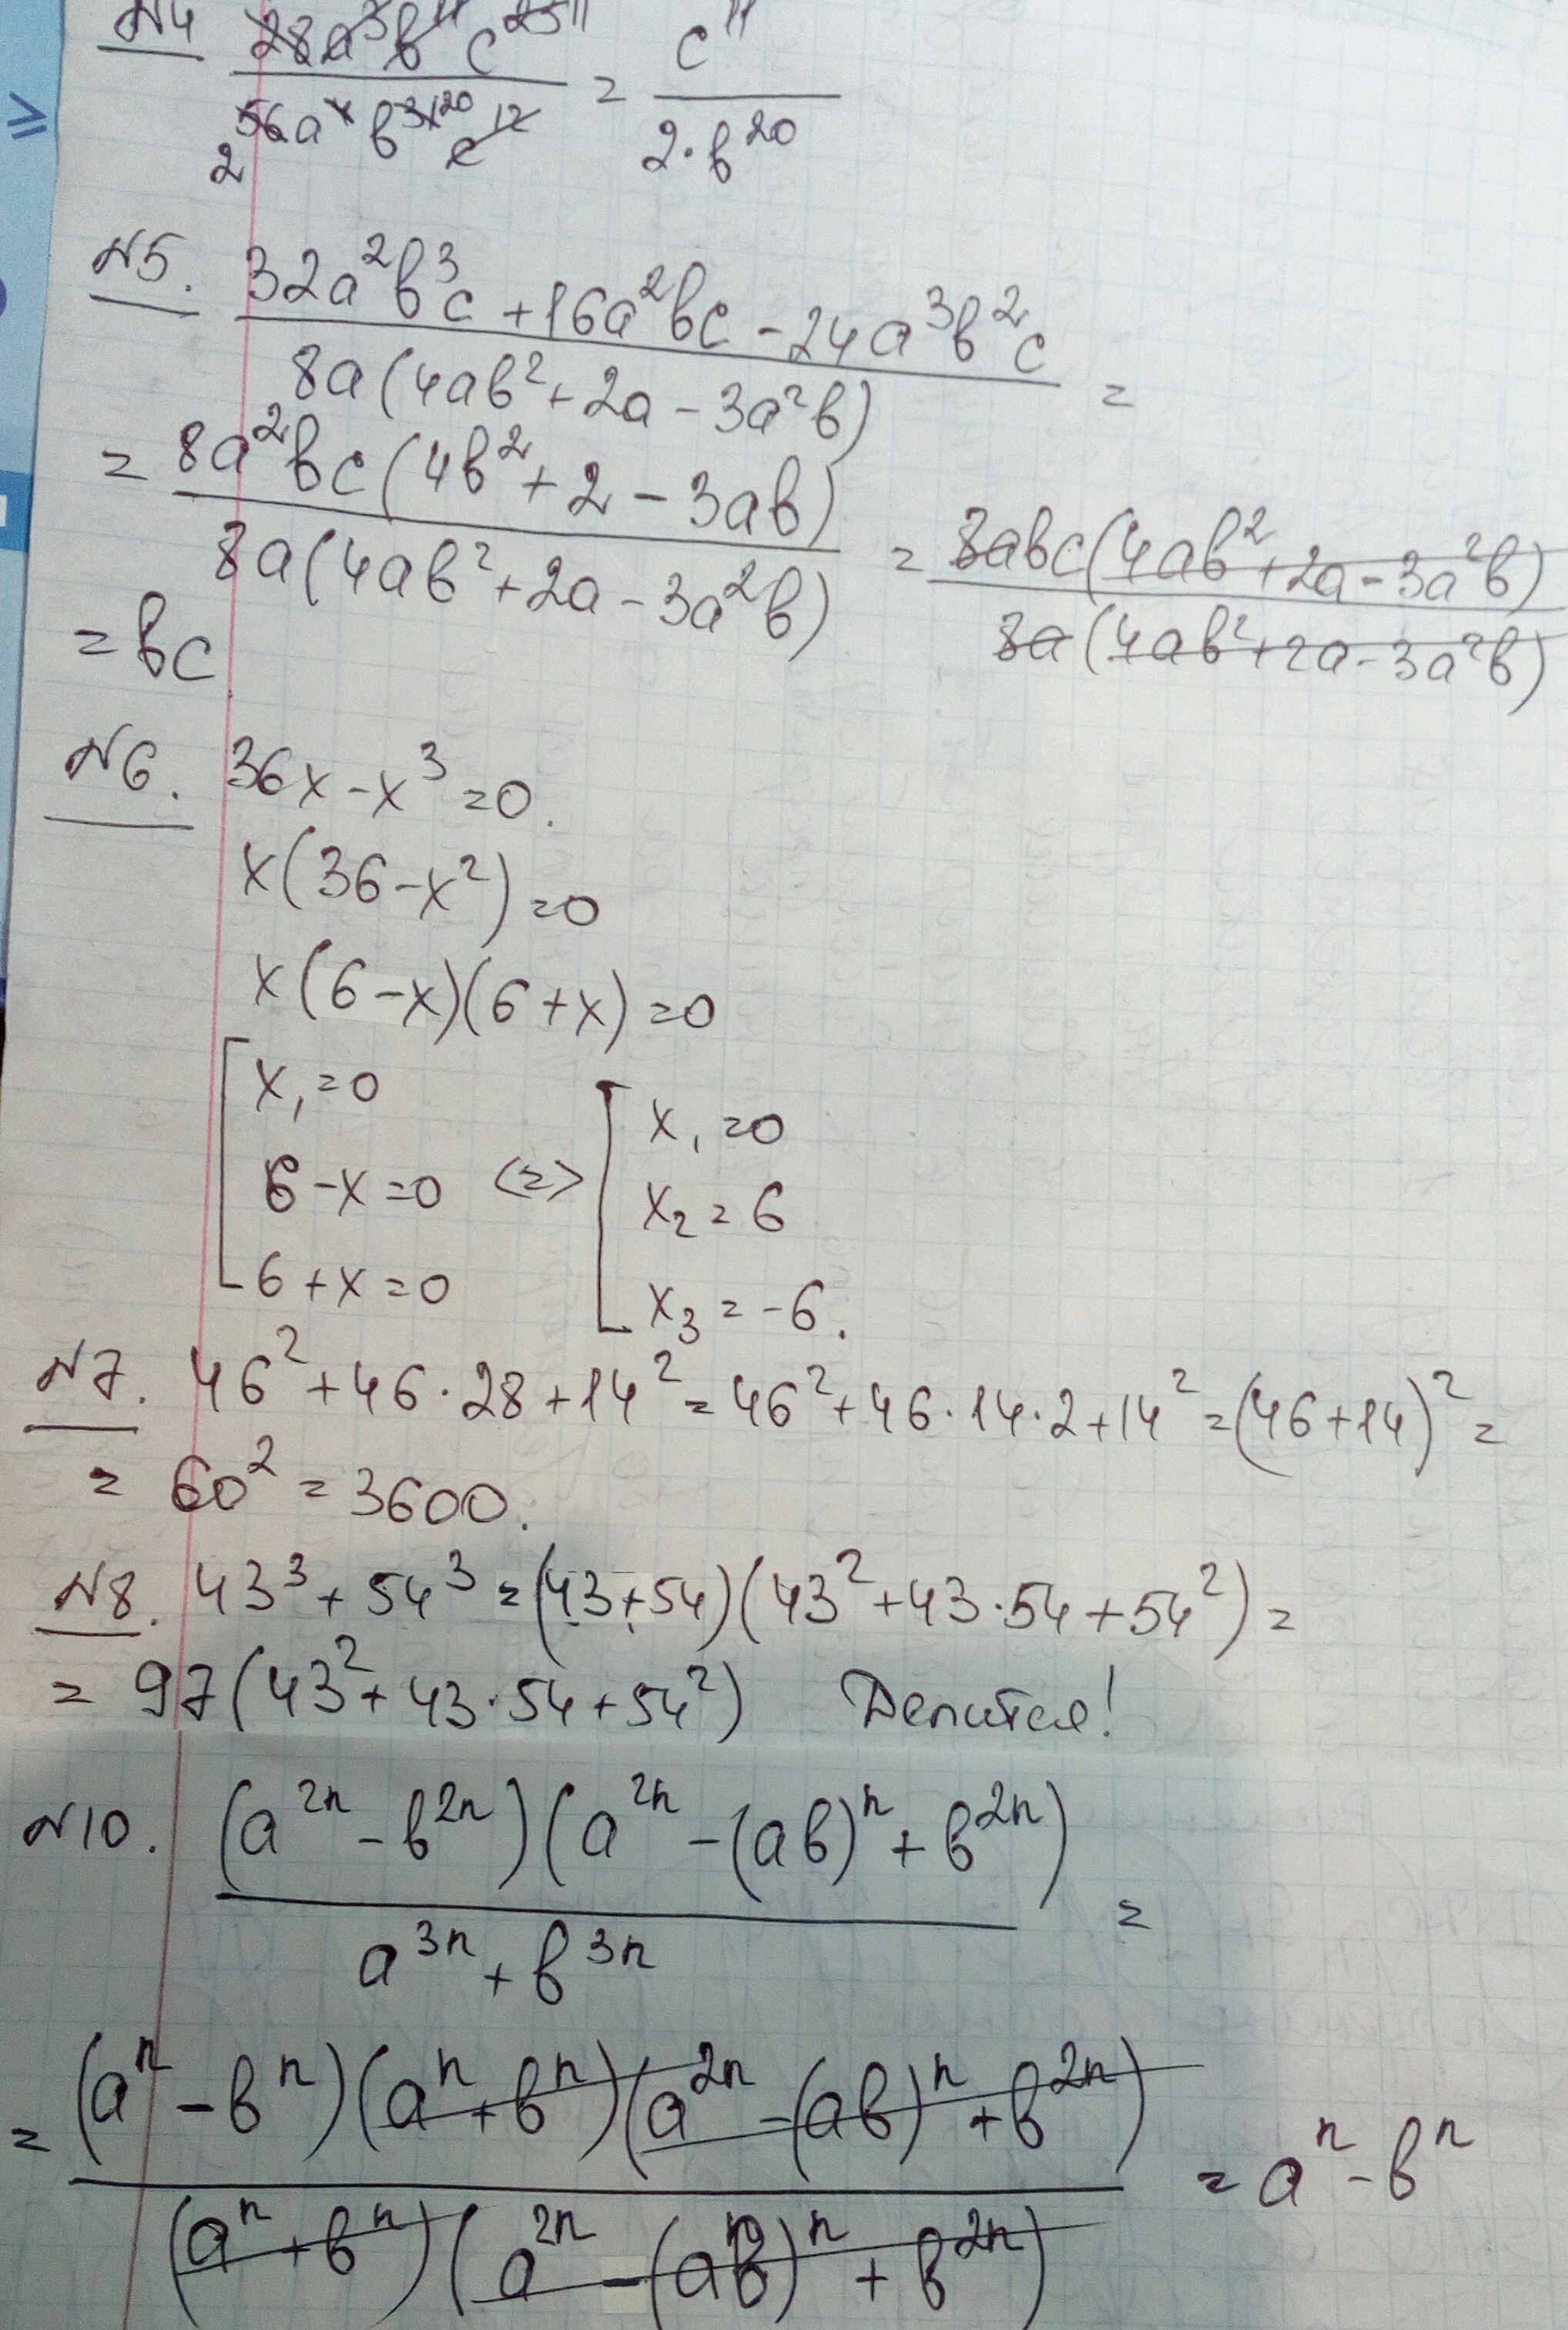 №4 28a³b¹¹c²³ ¹¹ / 2 56a^x b³¹ ²⁰ c¹² = c¹¹ / 2·b²⁰
№5. (32a²b³c + 16a²bc - 24a³b²c) / 8a(4ab² + 2a - 3a²b) =
= 8a²bc(4b² + 2 - 3ab) / 8a(4ab² + 2a - 3a²b) = 8abc(4ab² + 2a - 3a²b) / 8a(4ab² + 2a - 3a²b)
= bc
№6. 36x - x³ = 0.
x(36 - x²) = 0
x(6 - x)(6 + x) = 0
[ x₁ = 0 [ x₁ = 0
6 - x = 0 <=> x₂ = 6
6 + x = 0 x₃ = -6.
№7. 46² + 46·28 + 14² = 46² + 46·14·2 + 14² = (46 + 14)² =
= 60² = 3600.
№8. 43³ + 54³ = (43 + 54)(43² + 43·54 + 54²) =
= 97(43² + 43·54 + 54²) Делится!
№10. (a²ⁿ - b²ⁿ)(a²ⁿ - (ab)ⁿ + b²ⁿ) / a³ⁿ + b³ⁿ =
= (aⁿ - bⁿ)(aⁿ + bⁿ)(a²ⁿ - (ab)ⁿ + b²ⁿ) / (aⁿ + bⁿ)(a²ⁿ - (ab)ⁿ + b²ⁿ) = aⁿ - bⁿ